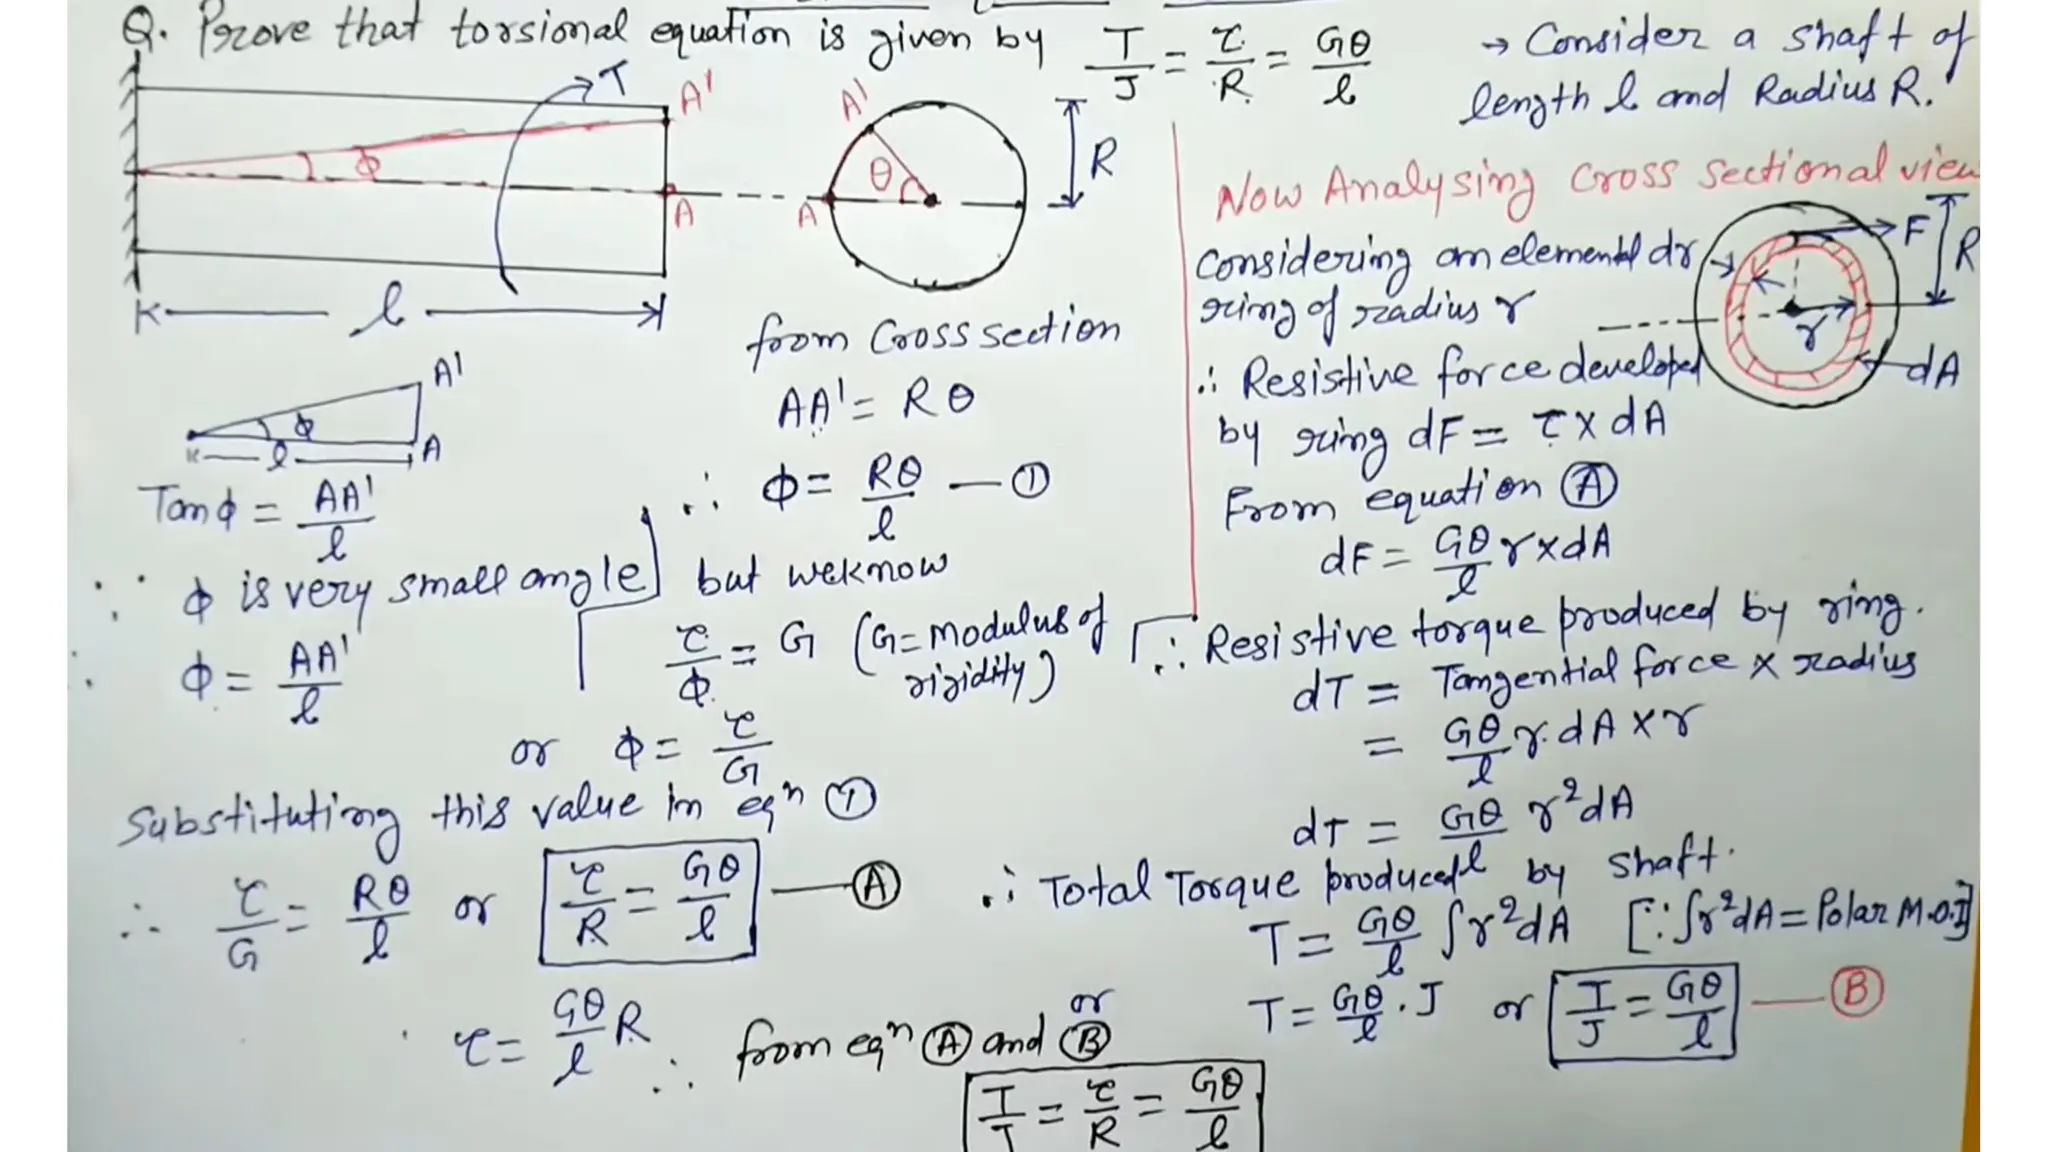 Q. Prove that torsional equation is given by T/J = τ/R = Gθ/l
→ Consider a shaft of
length l and Radius R.
T
A'
ϕ
A
l
A'
θ
A
R
A'
ϕ
l
A
Tanϕ = AA'/l
∵ ϕ is very small angle
∴ ϕ = AA'/l
from Cross section
AA' = Rθ
∴ ϕ = Rθ/l — ①
but weknow
τ/ϕ = G (G = Modulus of
rigidity)
or ϕ = τ/G
Substituting this value in eqⁿ ①
∴ τ/G = Rθ/l or τ/R = Gθ/l — Ⓐ
τ = Gθ/l R
Now Analysing Cross Sectional view
Considering an elemental dr
ring of radius r
F
R
r
dA
∴ Resistive force developed
by ring dF = τ × dA
From equation Ⓐ
dF = Gθ/l r × dA
∴ Resistive torque produced by ring.
dT = Tangential force × radius
= Gθ/l r. dA × r
dT = Gθ/l r²dA
∴ Total Torque produced by shaft.
T = Gθ/l ∫r²dA [∵ ∫r²dA = Polar M.O.I]
or
T = Gθ/l . J or T/J = Gθ/l — Ⓑ
∴ from eqⁿ Ⓐ and Ⓑ
T/J = τ/R = Gθ/l